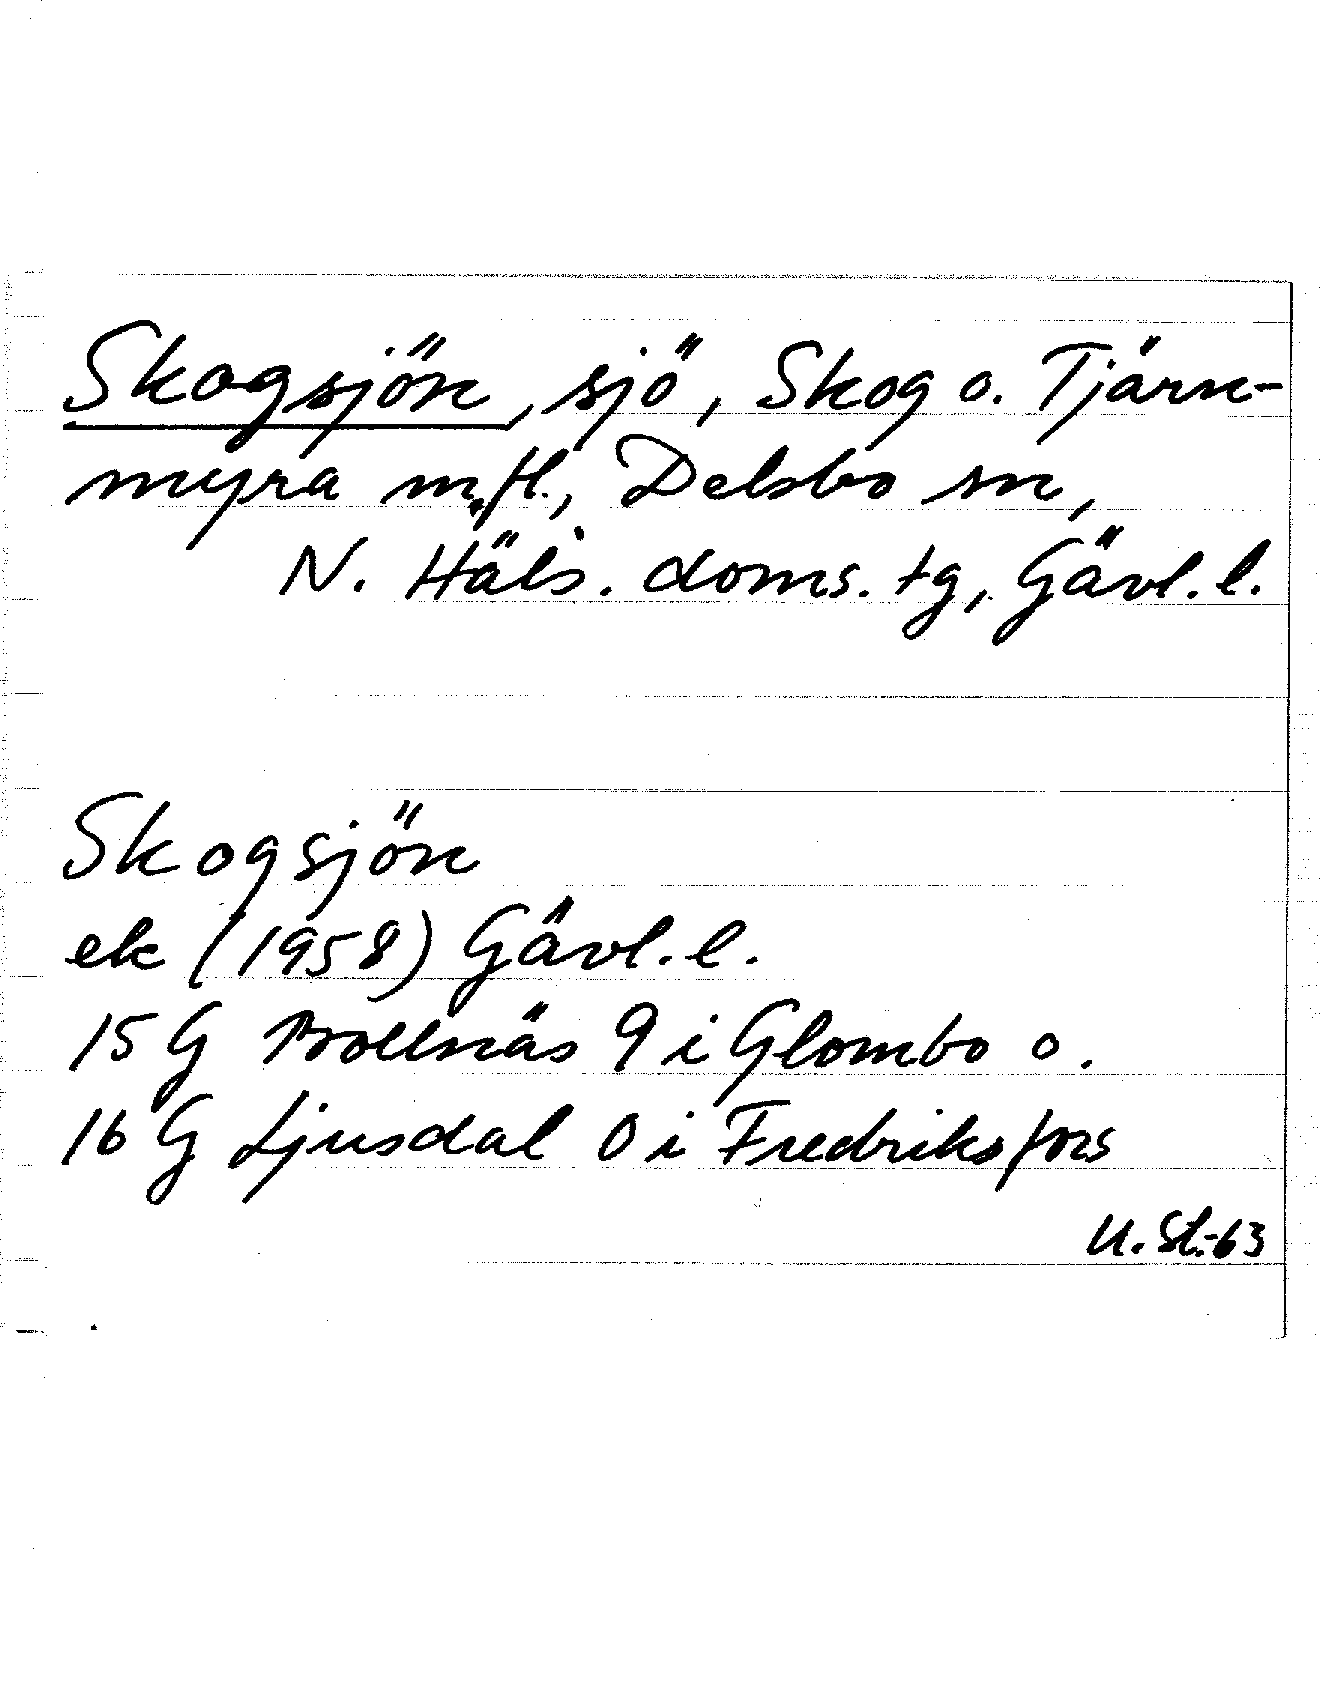 Skogsjön, sjö, Skog o. Tjärn-
myra m.fl., Delsbo sn,
N. Häls. doms. tg, Gävl. l.
Skogsjön
ek (1958) Gävl. l.
15 G Bollnäs 9 i Glombo o.
16 G Ljusdal 0 i Fredriksfors
U. St.-63